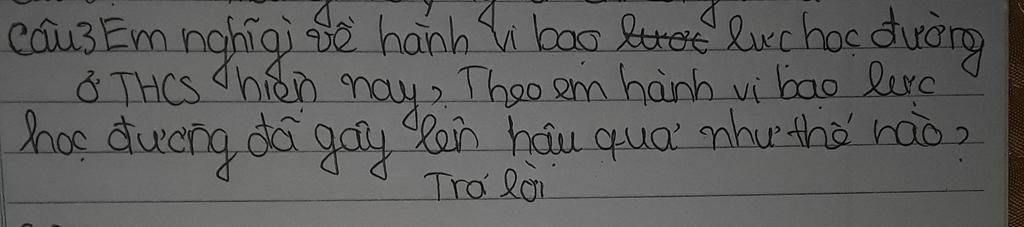 Câu3 Em nghĩ gì về hành vi bạo lực học đường
ở THCS hiện nay, Theo em hành vi bạo lực
học đường đã gây lên hậu quả như thế nào?
Trả lời